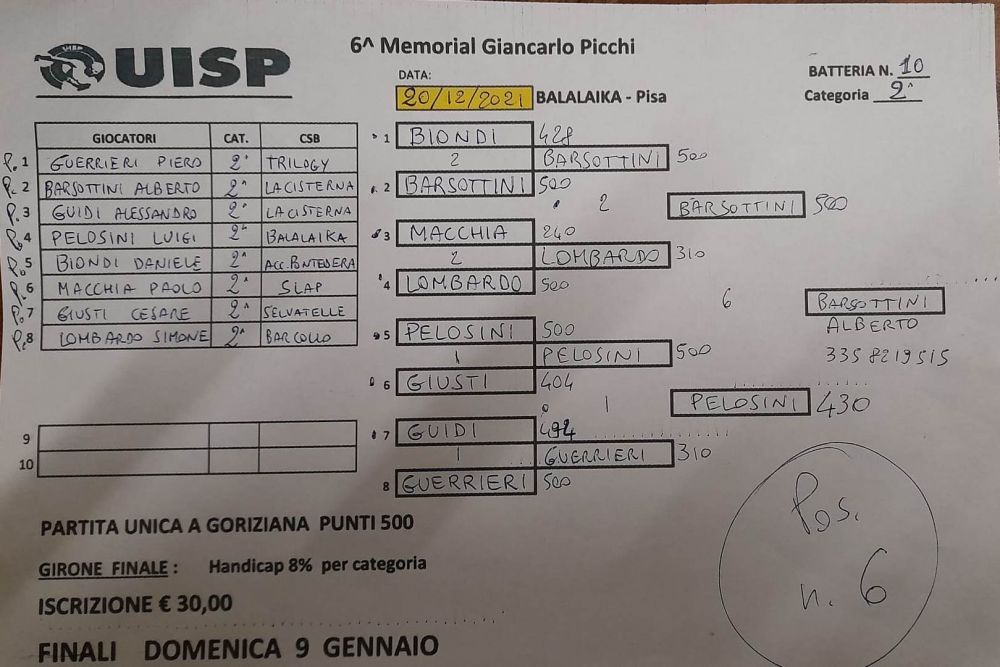 UISP
6^ Memorial Giancarlo Picchi
DATA:
20/12/2021 BALALAIKA - Pisa
BATTERIA N. 10
Categoria 2^
GIOCATORI CAT. CSB
P. 1 GUERRIERI PIERO 2^ TRILOGY
P. 2 BARSOTTINI ALBERTO 2^ LA CISTERNA
P. 3 GUIDI ALESSANDRO 2^ LA CISTERNA
P. 4 PELOSINI LUIGI 2^ BALALAIKA
P. 5 BIONDI DANIELE 2^ ACC. PONTEDERA
P. 6 MACCHIA PAOLO 2^ SLAP
P. 7 GIUSTI CESARE 2^ SELVATELLE
P. 8 LOMBARDO SIMONE 2^ BARCOLLO
9
10
1 BIONDI 428
2 BARSOTTINI 500
2 BARSOTTINI 500
2 BARSOTTINI 500
3 MACCHIA 240
2 LOMBARDO 310
4 LOMBARDO 500
6 BARSOTTINI
ALBERTO
335 8219515
5 PELOSINI 500
1 PELOSINI 500
6 GIUSTI 404
1 PELOSINI 430
7 GUIDI 494
1 GUERRIERI 310
8 GUERRIERI 500
PARTITA UNICA A GORIZIANA PUNTI 500
GIRONE FINALE : Handicap 8% per categoria
ISCRIZIONE € 30,00
FINALI DOMENICA 9 GENNAIO
Pos.
n. 6